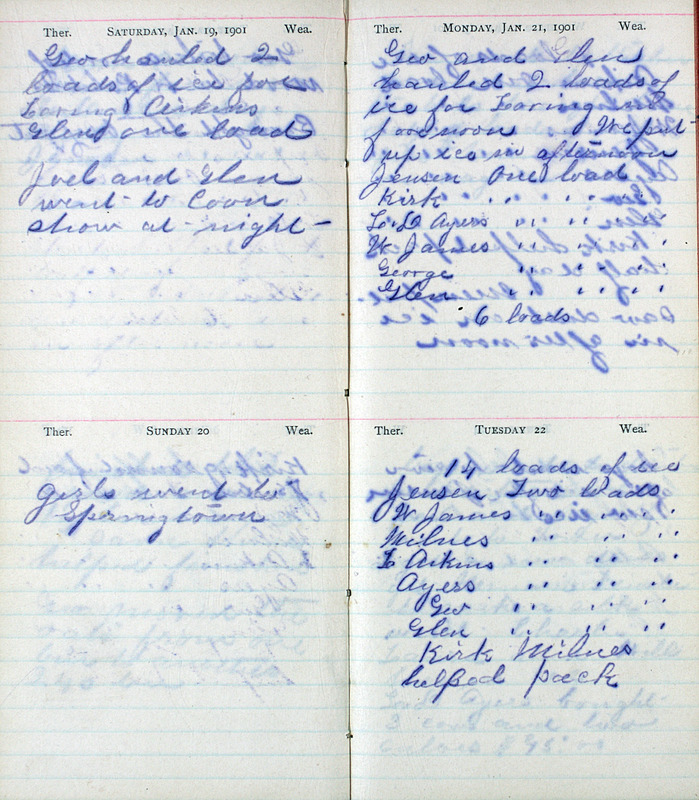 Ther. SATURDAY, JAN. 19, 1901 Wea.
Geo hauled 2
loads of ice for
Loring Aikins
Glen one load
Joel and Glen
went to Coon
show at night
Ther. SUNDAY 20 Wea.
girls went to
Springtown
Ther. MONDAY, JAN. 21, 1901 Wea.
Geo and Glen
hauled 2 loads of
ice for Loring in
forenoon We put
up ice in afternoon
Jensen one load
Kirk " " "
L. D Ayers " " "
W James " " "
George " " "
Glen " " "
6 loads
Ther. TUESDAY 22 Wea.
14 loads of ice
Jensen Two loads
W James " " "
Milnes " " "
L Aikins " " "
Ayers " " "
Geo " " "
Glen " " "
Kirk Milnes
helpod pack